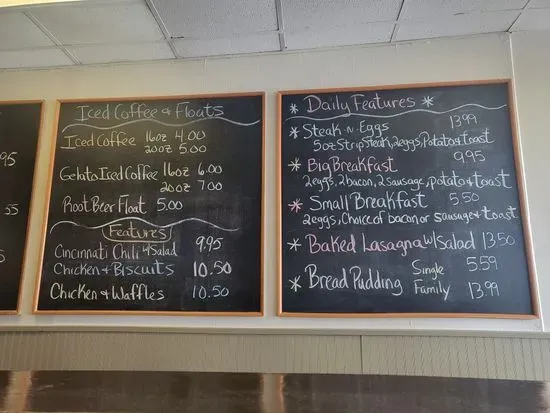 95
55
Iced Coffee & Floats
Iced Coffee 16oz 4.00
20oz 5.00
Gelato Iced Coffee 16oz 6.00
20oz 7.00
Root Beer Float 5.00
Features
Cincinnati Chili w/Salad 9.95
Chicken & Biscuits 10.50
Chicken & Waffles 10.50
* Daily Features *
* Steak-n-Eggs 13.99
5oz Strip Steak, 2eggs, Potato & toast
* Big Breakfast 9.95
2eggs, 2bacon, 2Sausage, Potato & toast
* Small Breakfast 5.50
2eggs, Choice of bacon or sausage & toast
* Baked Lasagna w/Salad 13.50
* Bread Pudding Single 5.59
Family 13.99